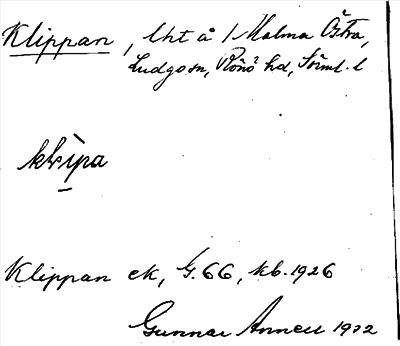 Klippan, lht å 1 Malma Östra,
Ludgo sn, Rönö hd, Söml. l
klìpa
Klippan ek, G. 66, kb. 1926
Gunnar Annell 1932